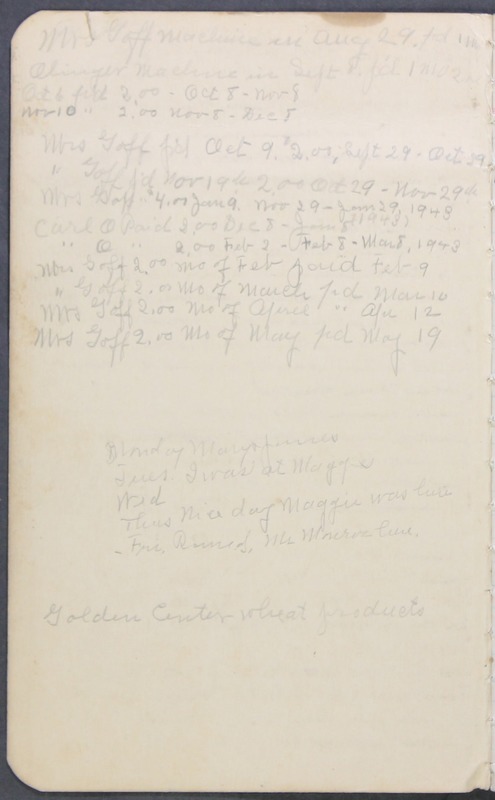 Mrs Goff Machine in Aug 29. pd 1 m
Olinger Machine in Sept 8. pd 1 mo 2
Oct 6 pd 2.00 - Oct 8 - Nov 8
Nov 10 " 2.00 Nov 8 - Dec 8
Mrs Goff pd Oct 9. $2.00, Sept 29 - Oct 29
" Goff pd Nov 19th 2.00 Oct 29 - Nov 29th
Mrs Goff " 4.00 Jan 9. Nov 29 - Jan 29, 1943
Carl O Paid 2.00 Dec 8 - Jan 8 (1943)
" O " 2.00 Feb 2 - Feb 8 - Mar 8, 1943
Mrs Goff 2.00 mo of Feb paid Feb 9
" Goff 2.00 Mo of March pd Mar 10
Mrs Goff 2.00 Mo of April " Apr 12
Mrs Goff 2.00 Mo of May pd May 19
Monday Mary
Tues I was at Maggie
Wed
Thus Nice day Maggie was here
- Fri, Rained, Mr here.
Golden Center wheat products